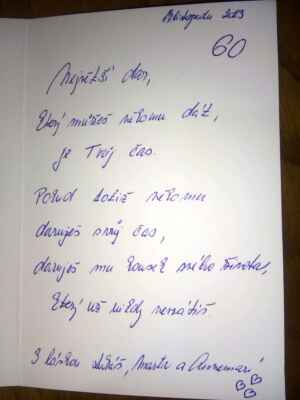 listopadu 2013
60
Největší dar,
který můžeš někomu dát,
je Tvůj čas.
Pokud totiž někomu
daruješ svůj čas,
daruješ mu kousek svého života,
který už nikdy nevrátíš
S láskou, Marta a Annemari